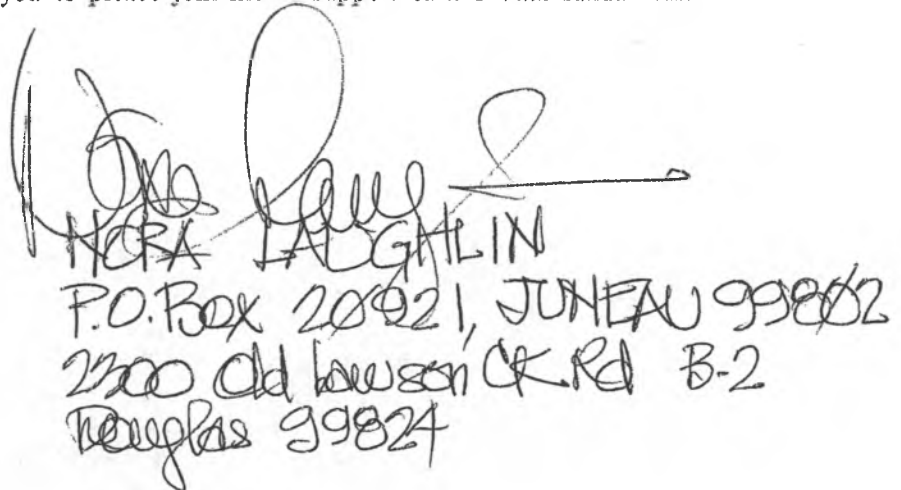 you to please join me
NORA LAUGHLIN
P.O. Box 20921, JUNEAU 99802
2300 Old Lawson CK. Rd B-2
Douglas 99824